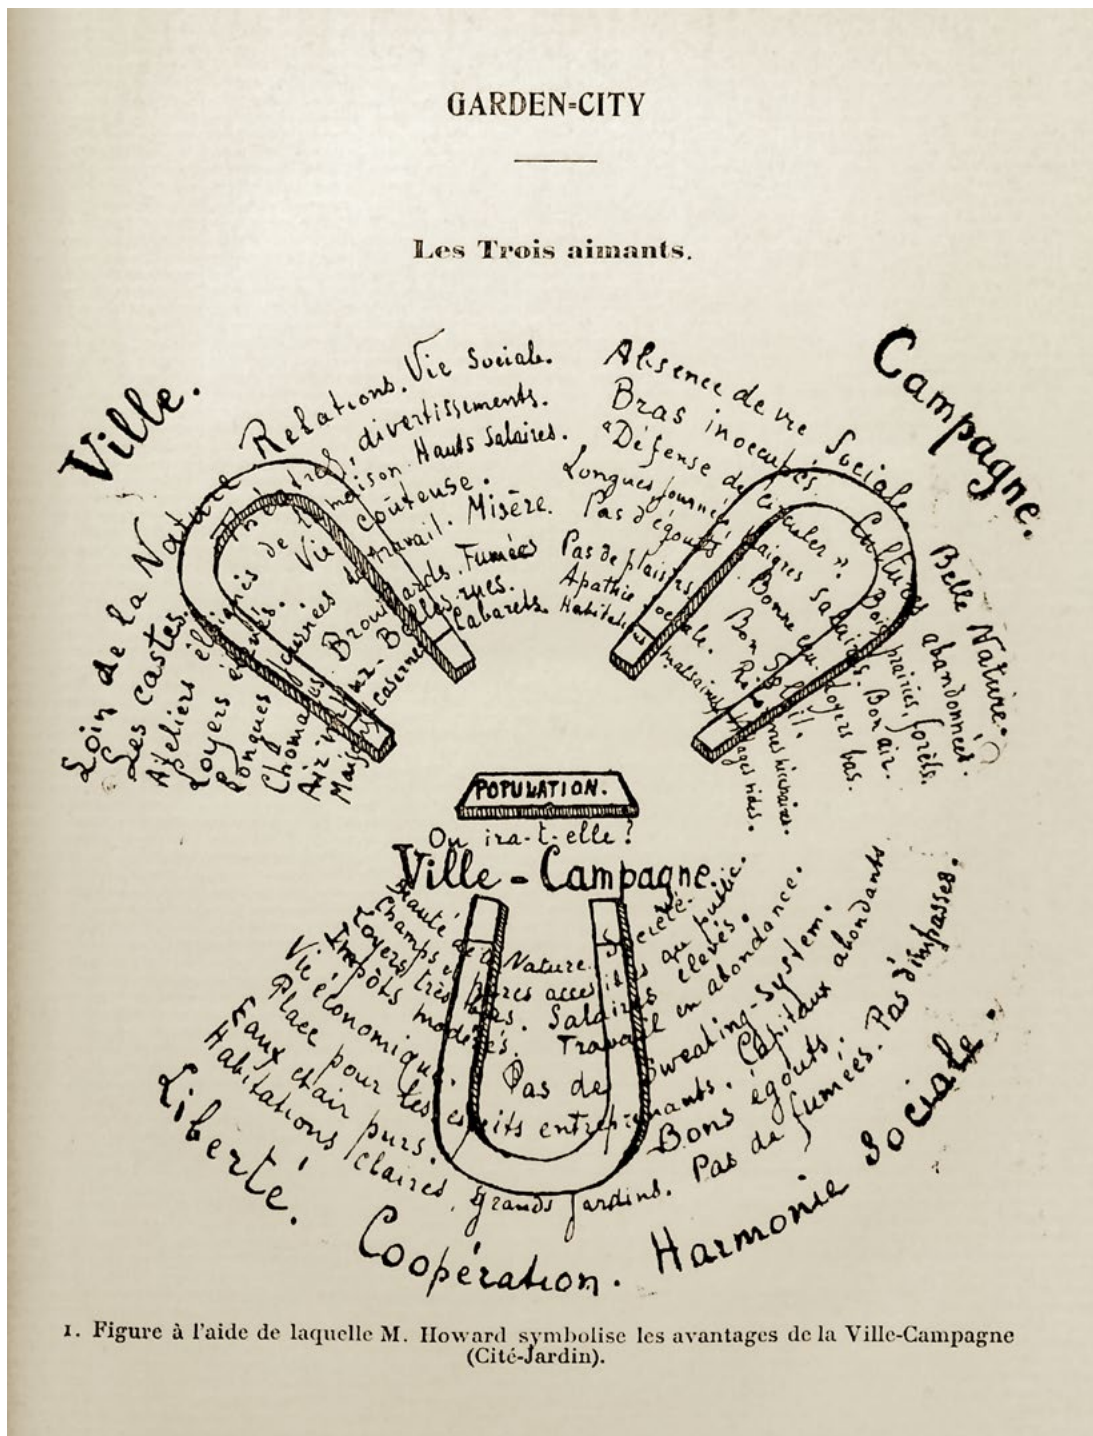 GARDEN=CITY
Les Trois aimants.
Ville.
Loin de la Nature. Relations. Vie Sociale.
Les castes. Théatres, divertissements.
Ateliers éloignés de la maison. Hauts Salaires.
Loyers élevés. Vie coûteuse.
Longues journées de travail. Misère.
Chomages Brouillards. Fumées
Air impur. Belles rues.
Maisons casernes Cabarets.
Campagne.
Absence de vie Sociale. Belle Nature.
Bras inoccupés. Cultures abandonnées.
"Défense de circuler". Bois, prairies, forêts.
Longues journées, maigres Salaires. Bon air.
Pas d'égouts Bonne eau. Loyers bas.
Pas de plaisirs Bon Soleil.
Apathie Sociale.
Habitations malsaines villages vides.
POPULATION.
Ou ira-t-elle?
Ville - Campagne.
Beauté de la Nature. Société.
Champs et parcs accessibles au public.
Loyers très bas. Salaires élevés.
Impôts modérés. Travail en abondance.
Vie économique. Pas de Sweating-System.
Place pour les esprits entreprenants. Capitaux abondants
Eaux et air purs. Bons égouts.
Habitations claires, grands jardins. Pas de fumées. Pas d'impasses.
Liberté. Coopération. Harmonie Sociale.
1. Figure à l'aide de laquelle M. Howard symbolise les avantages de la Ville-Campagne
(Cité-Jardin).